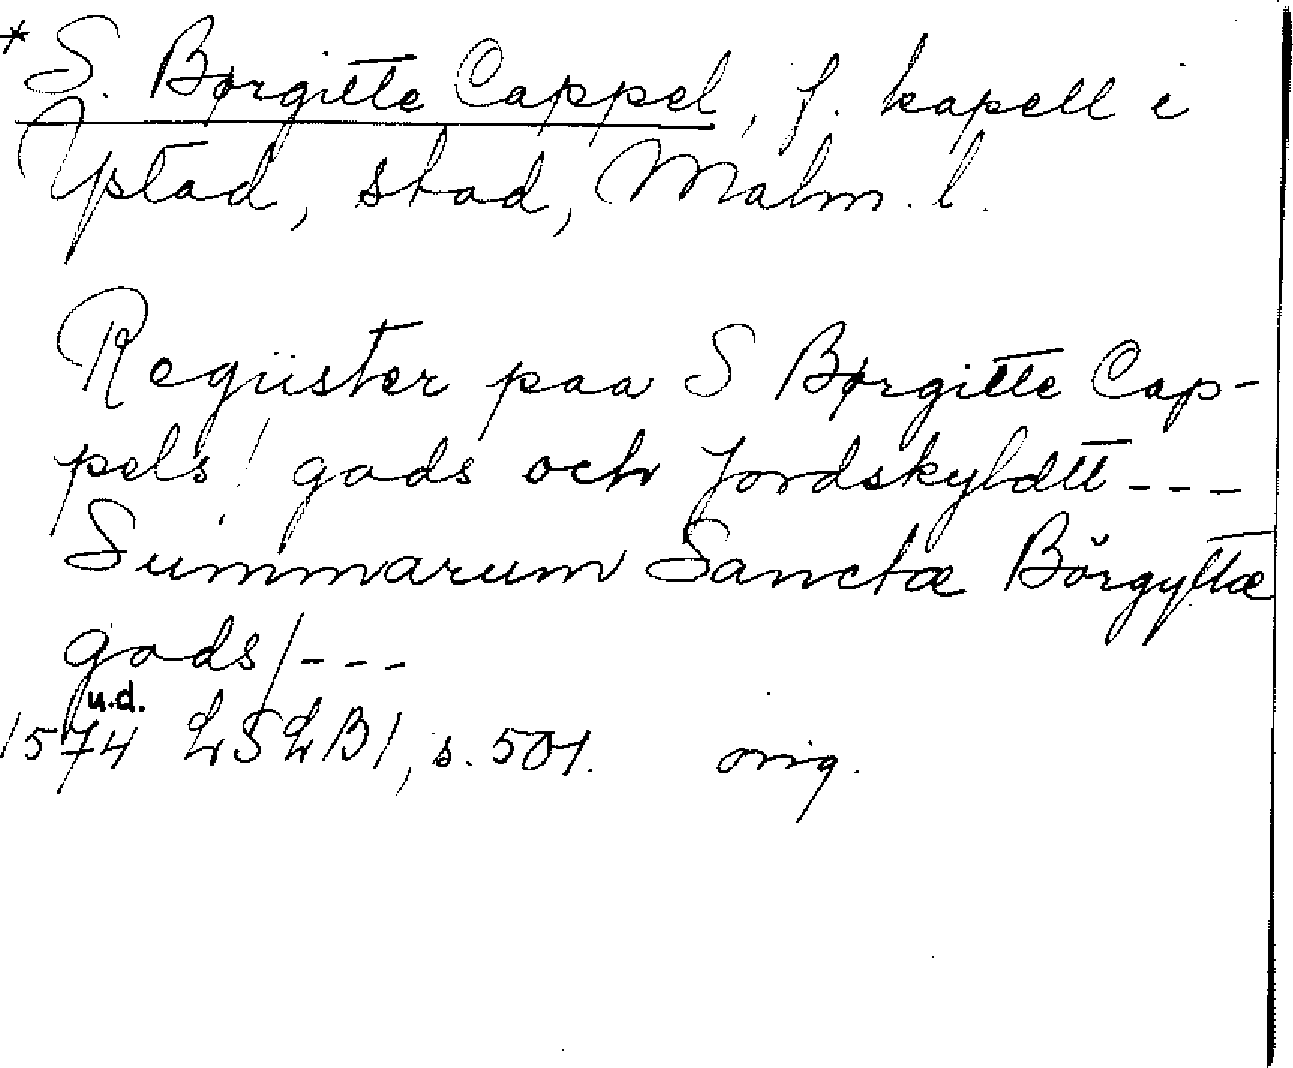 * S. Børgitte Cappel, f. kapell i
Ystad, stad, Malm. l.
Regiister paa S Børgitte Cap-
pels! gods och Jordskyldtt ---
Summarum Sanctæ Börgyttæ
gods/---
u.d.
1574 LSLB1, s. 501. orig.